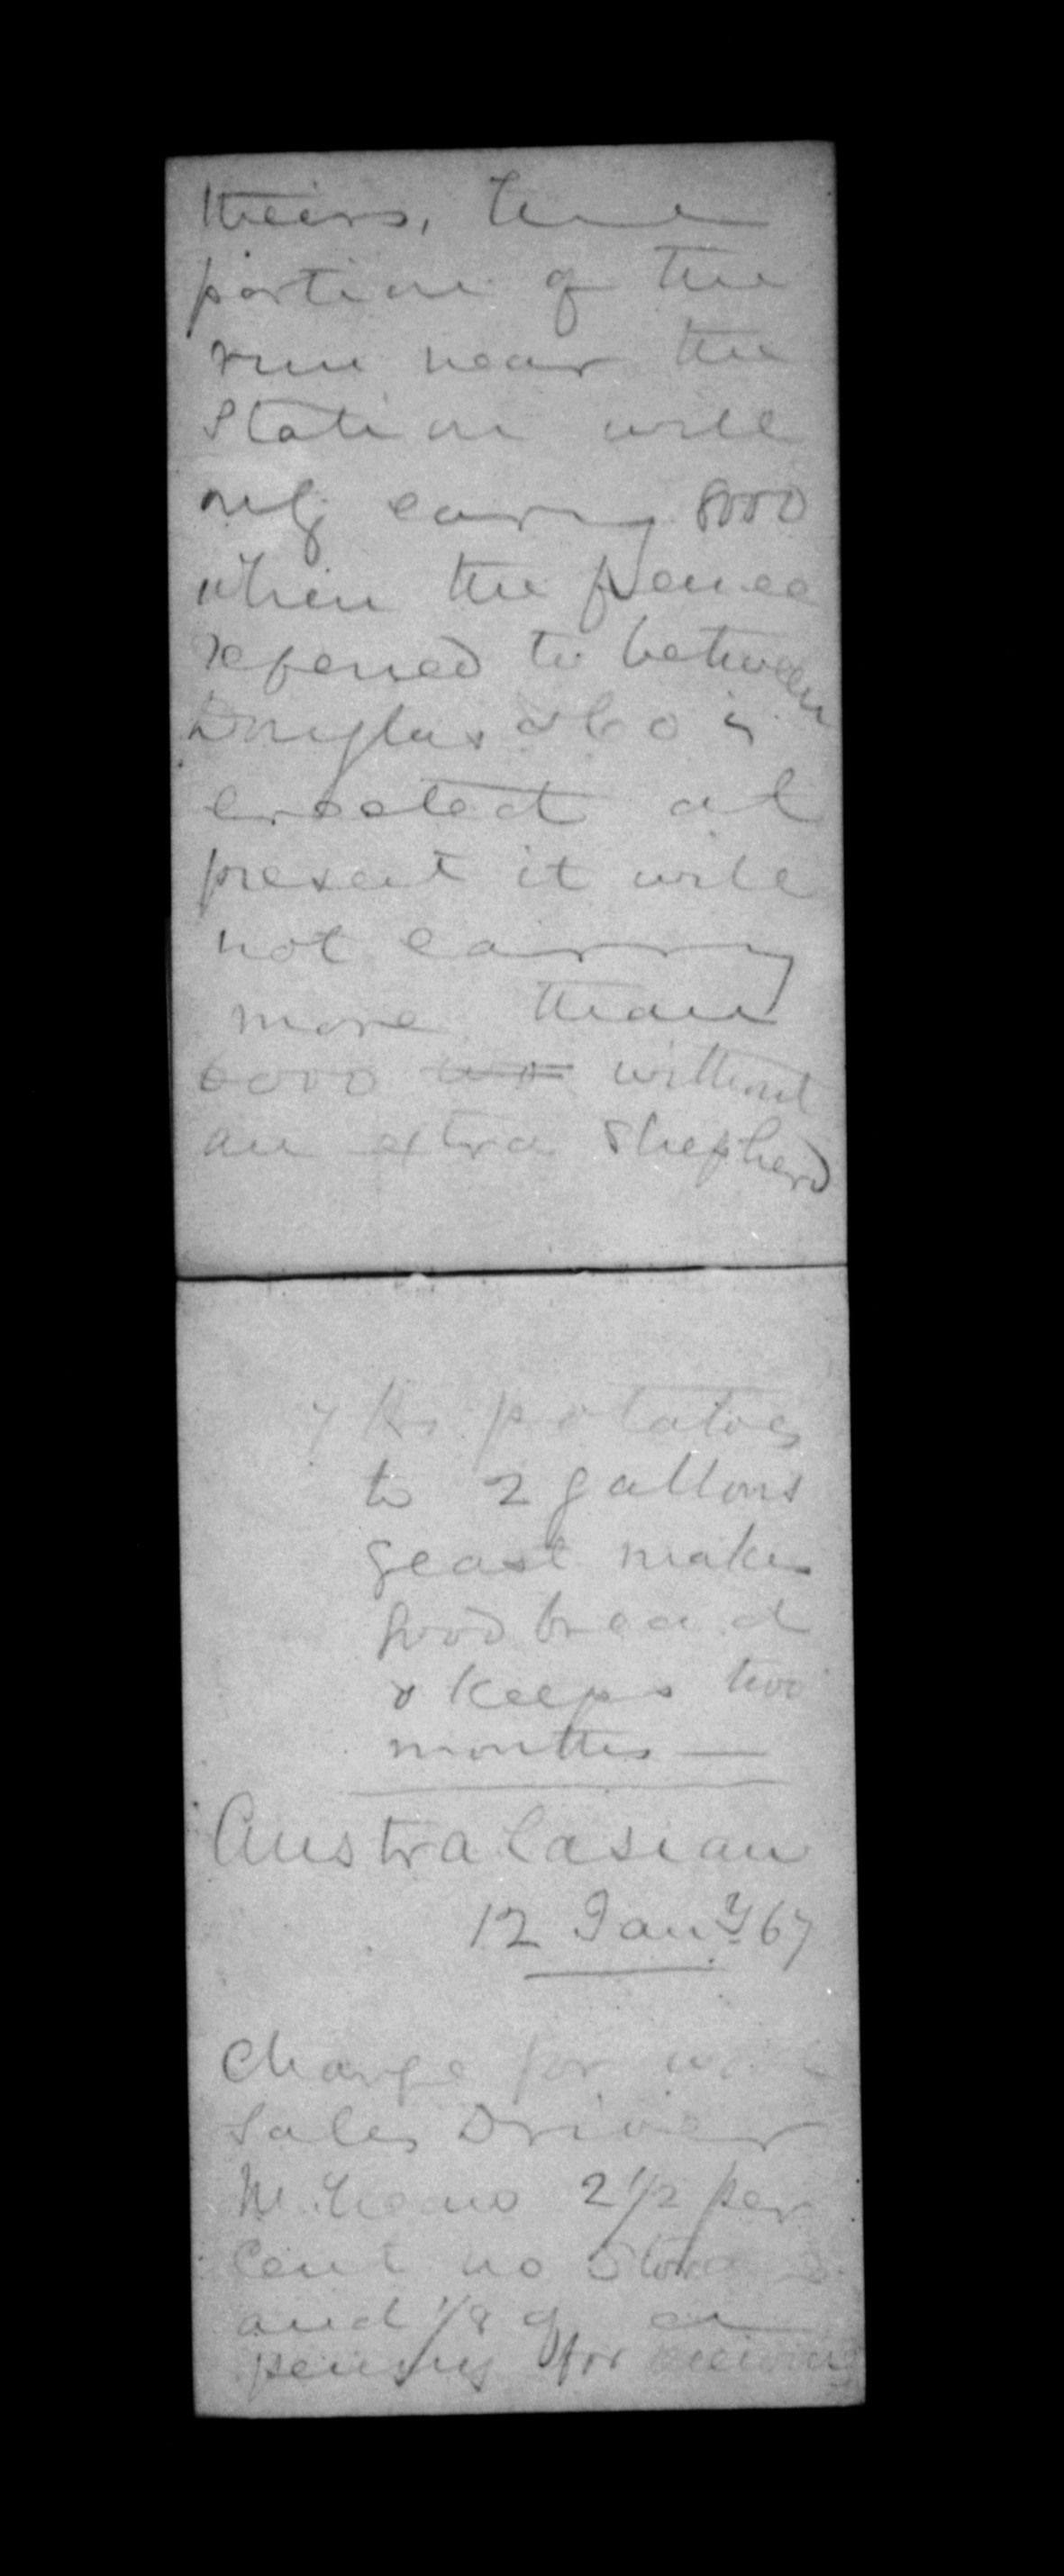 theirs, the
portion of the
run near the
Station will
only carry 8000
when the fence
refered to between
Douglas & Co is
erected at
present it will
not carry
more than
6000 without
an extra Shepherd
7 lbs potatoes
to 2 gallons
yeast makes
good bread
& keeps two
months —
Australasian
12 Jany 67
Charge for
Sales Driver
2 1/2 per
Cent no
and 1/8 of a
penny for